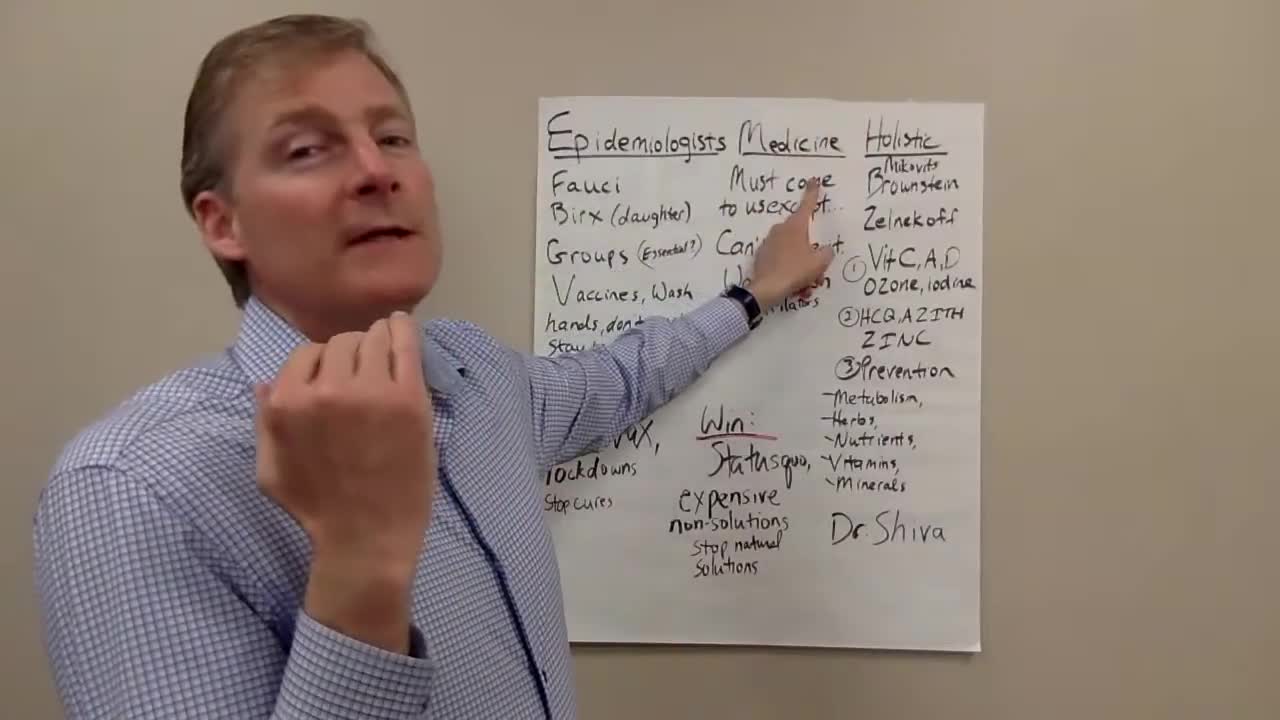 Epidemiologists
Fauci
Birx (daughter)
Groups (Essential?)
Vaccines, Wash
hands,
lockdowns
Stop cures
Medicine
Must come
to us except...
Win:
Status quo,
expensive
non-solutions
Stop natural
Solutions
Holistic
Mikovits
Brownstein
Zelnekoff
① Vit C, A, D
Ozone, iodine
② HCQ, AZITH
ZINC
③ Prevention
- Metabolism,
- Herbs,
- Nutrients,
- Vitamins,
- Minerals
Dr. Shiva